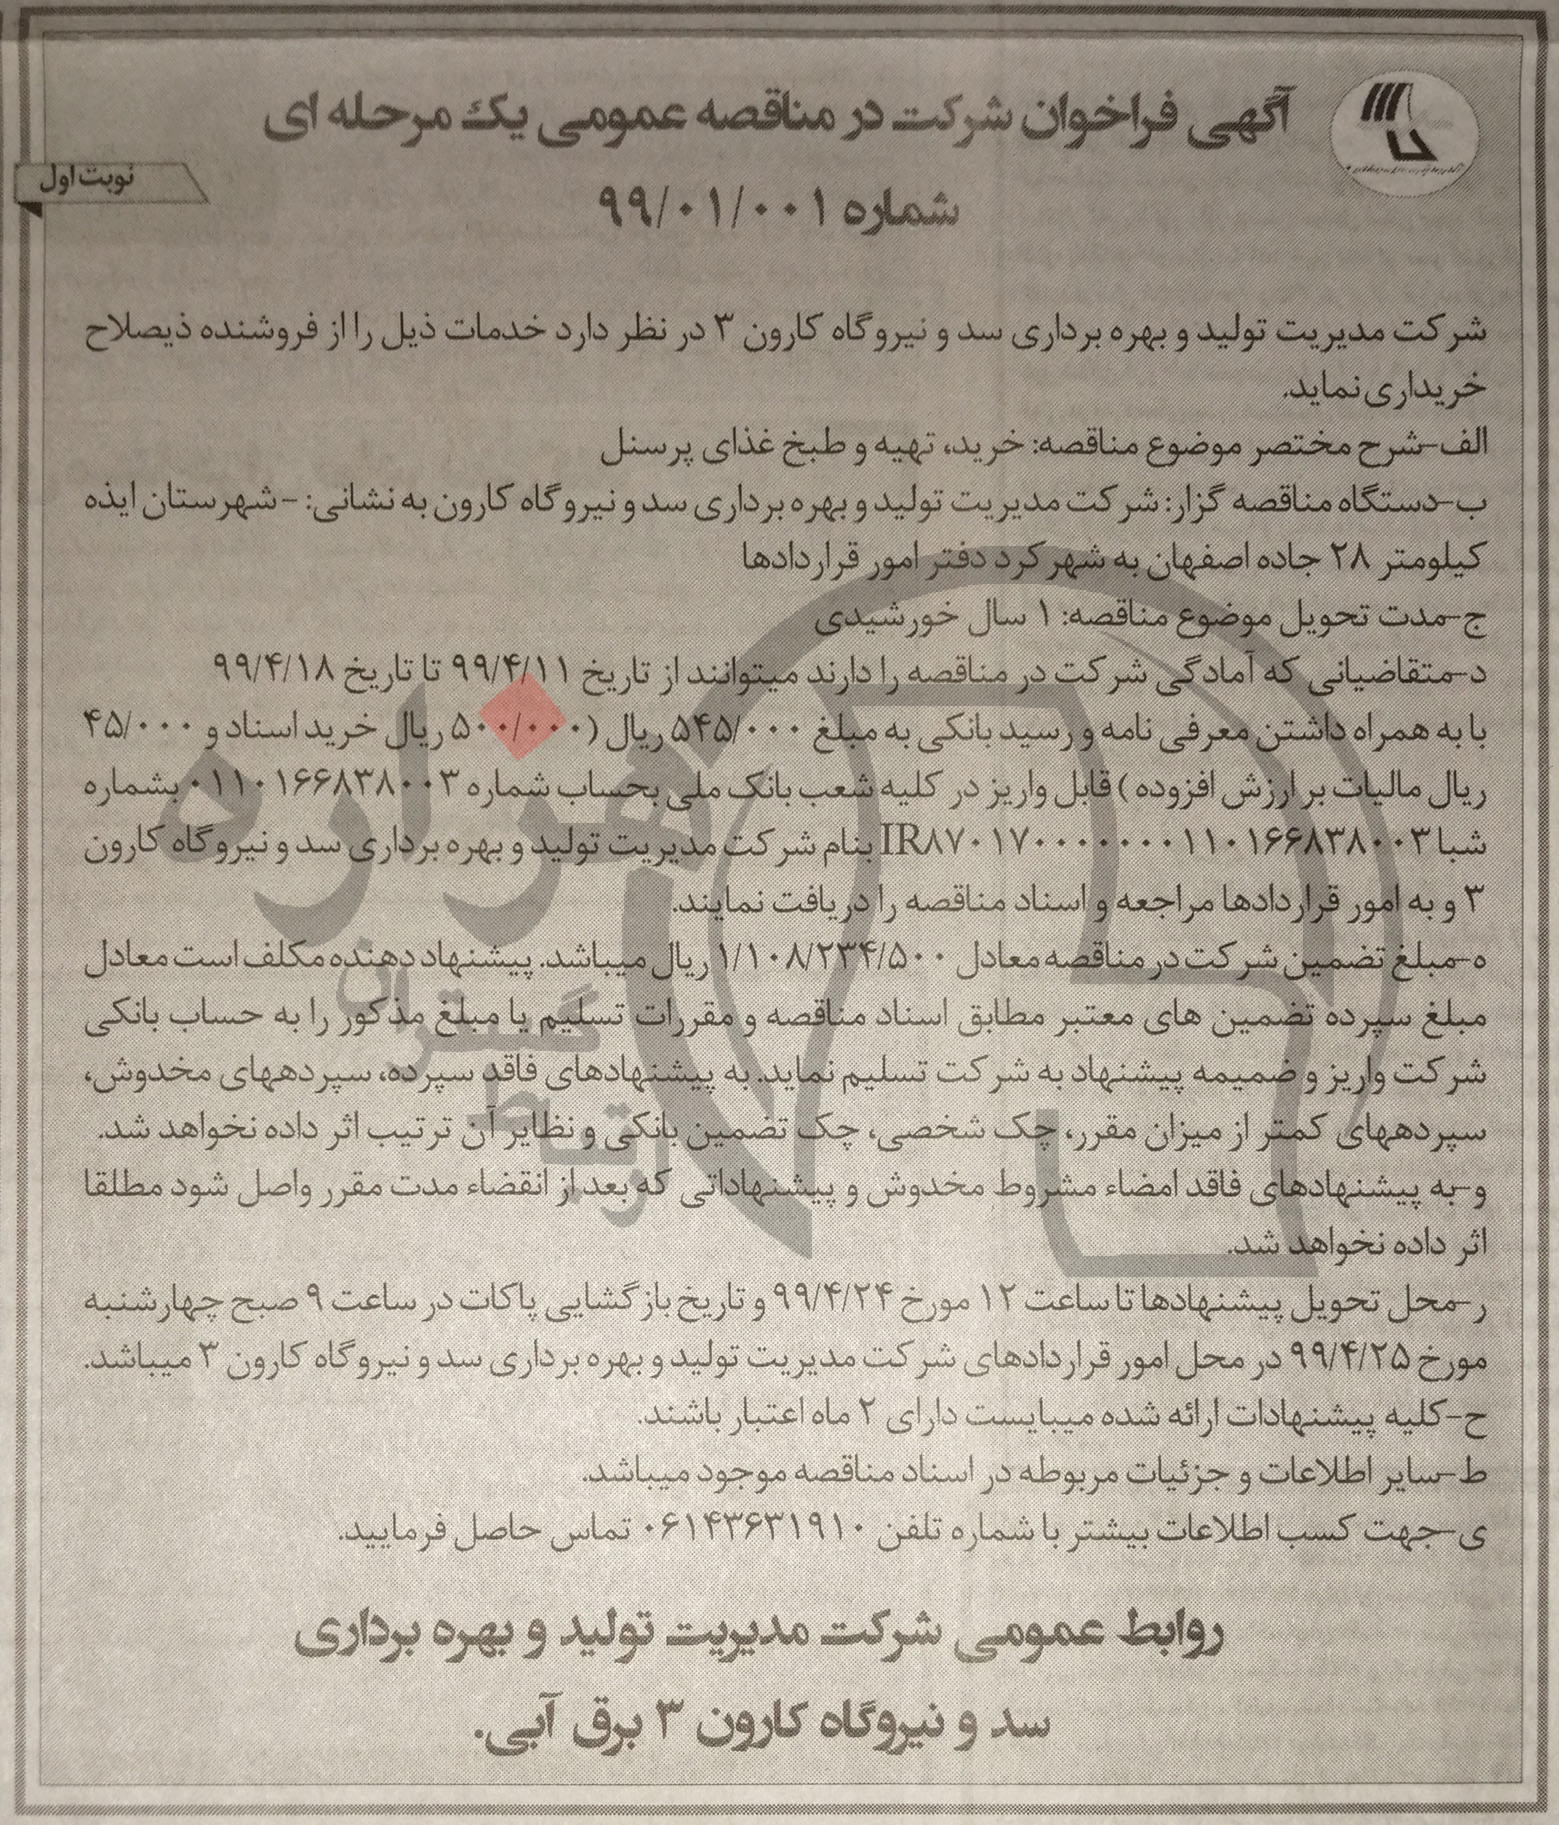 آگهی فراخوان شرکت در مناقصه عمومی یک مرحله ای
نوبت اول
شماره ۹۹/۰۱/۰۰۱
شرکت مدیریت تولید و بهره برداری سد و نیروگاه کارون ۳ در نظر دارد خدمات ذیل را از فروشنده ذیصلاح
خریداری نماید.
الف-شرح مختصر موضوع مناقصه: خرید، تهیه و طبخ غذای پرسنل
ب-دستگاه مناقصه گزار: شرکت مدیریت تولید و بهره برداری سد و نیروگاه کارون به نشانی: -شهرستان ایذه
کیلومتر ۲۸ جاده اصفهان به شهرکرد دفتر امور قراردادها
ج-مدت تحویل موضوع مناقصه: ۱ سال خورشیدی
د-متقاضیانی که آمادگی شرکت در مناقصه را دارند میتوانند از تاریخ ۹۹/۴/۱۱ تا تاریخ ۹۹/۴/۱۸
با به همراه داشتن معرفی نامه و رسید بانکی به مبلغ ۵۴۵/۰۰۰ ریال (۵۰۰/۰۰۰ ریال خرید اسناد و ۴۵/۰۰۰
ریال مالیات بر ارزش افزوده ) قابل واریز در کلیه شعب بانک ملی بحساب شماره ۰۱۱۰۱۶۶۸۳۸۰۰۳ بشماره
شبا IR۸۷۰۱۷۰۰۰۰۰۰۰۱۱۰۱۶۶۸۳۸۰۰۳ بنام شرکت مدیریت تولید و بهره برداری سد و نیروگاه کارون
۳ و به امور قراردادها مراجعه و اسناد مناقصه را دریافت نمایند.
ه-مبلغ تضمین شرکت در مناقصه معادل ۱/۱۰۸/۲۳۴/۵۰۰ ریال میباشد. پیشنهاد دهنده مکلف است معادل
مبلغ سپرده تضمین های معتبر مطابق اسناد مناقصه و مقررات تسلیم یا مبلغ مذکور را به حساب بانکی
شرکت واریز و ضمیمه پیشنهاد به شرکت تسلیم نماید. به پیشنهادهای فاقد سپرده، سپردههای مخدوش،
سپردههای کمتر از میزان مقرر، چک شخصی، چک تضمین بانکی و نظایر آن ترتیب اثر داده نخواهد شد.
و-به پیشنهادهای فاقد امضاء مشروط مخدوش و پیشنهاداتی که بعد از انقضاء مدت مقرر واصل شود مطلقا
اثر داده نخواهد شد.
ر-محل تحویل پیشنهادها تا ساعت ۱۲ مورخ ۹۹/۴/۲۴ و تاریخ بازگشایی پاکات در ساعت ۹ صبح چهارشنبه
مورخ ۹۹/۴/۲۵ در محل امور قراردادهای شرکت مدیریت تولید و بهره برداری سد و نیروگاه کارون ۳ میباشد.
ح-کلیه پیشنهادات ارائه شده میبایست دارای ۲ ماه اعتبار باشند.
ط-سایر اطلاعات و جزئیات مربوطه در اسناد مناقصه موجود میباشد.
ی-جهت کسب اطلاعات بیشتر با شماره تلفن ۰۶۱۴۳۶۳۱۹۱۰ تماس حاصل فرمایید.
روابط عمومی شرکت مدیریت تولید و بهره برداری
سد و نیروگاه کارون ۳ برق آبی.
هزاره
گستران
ارتباط